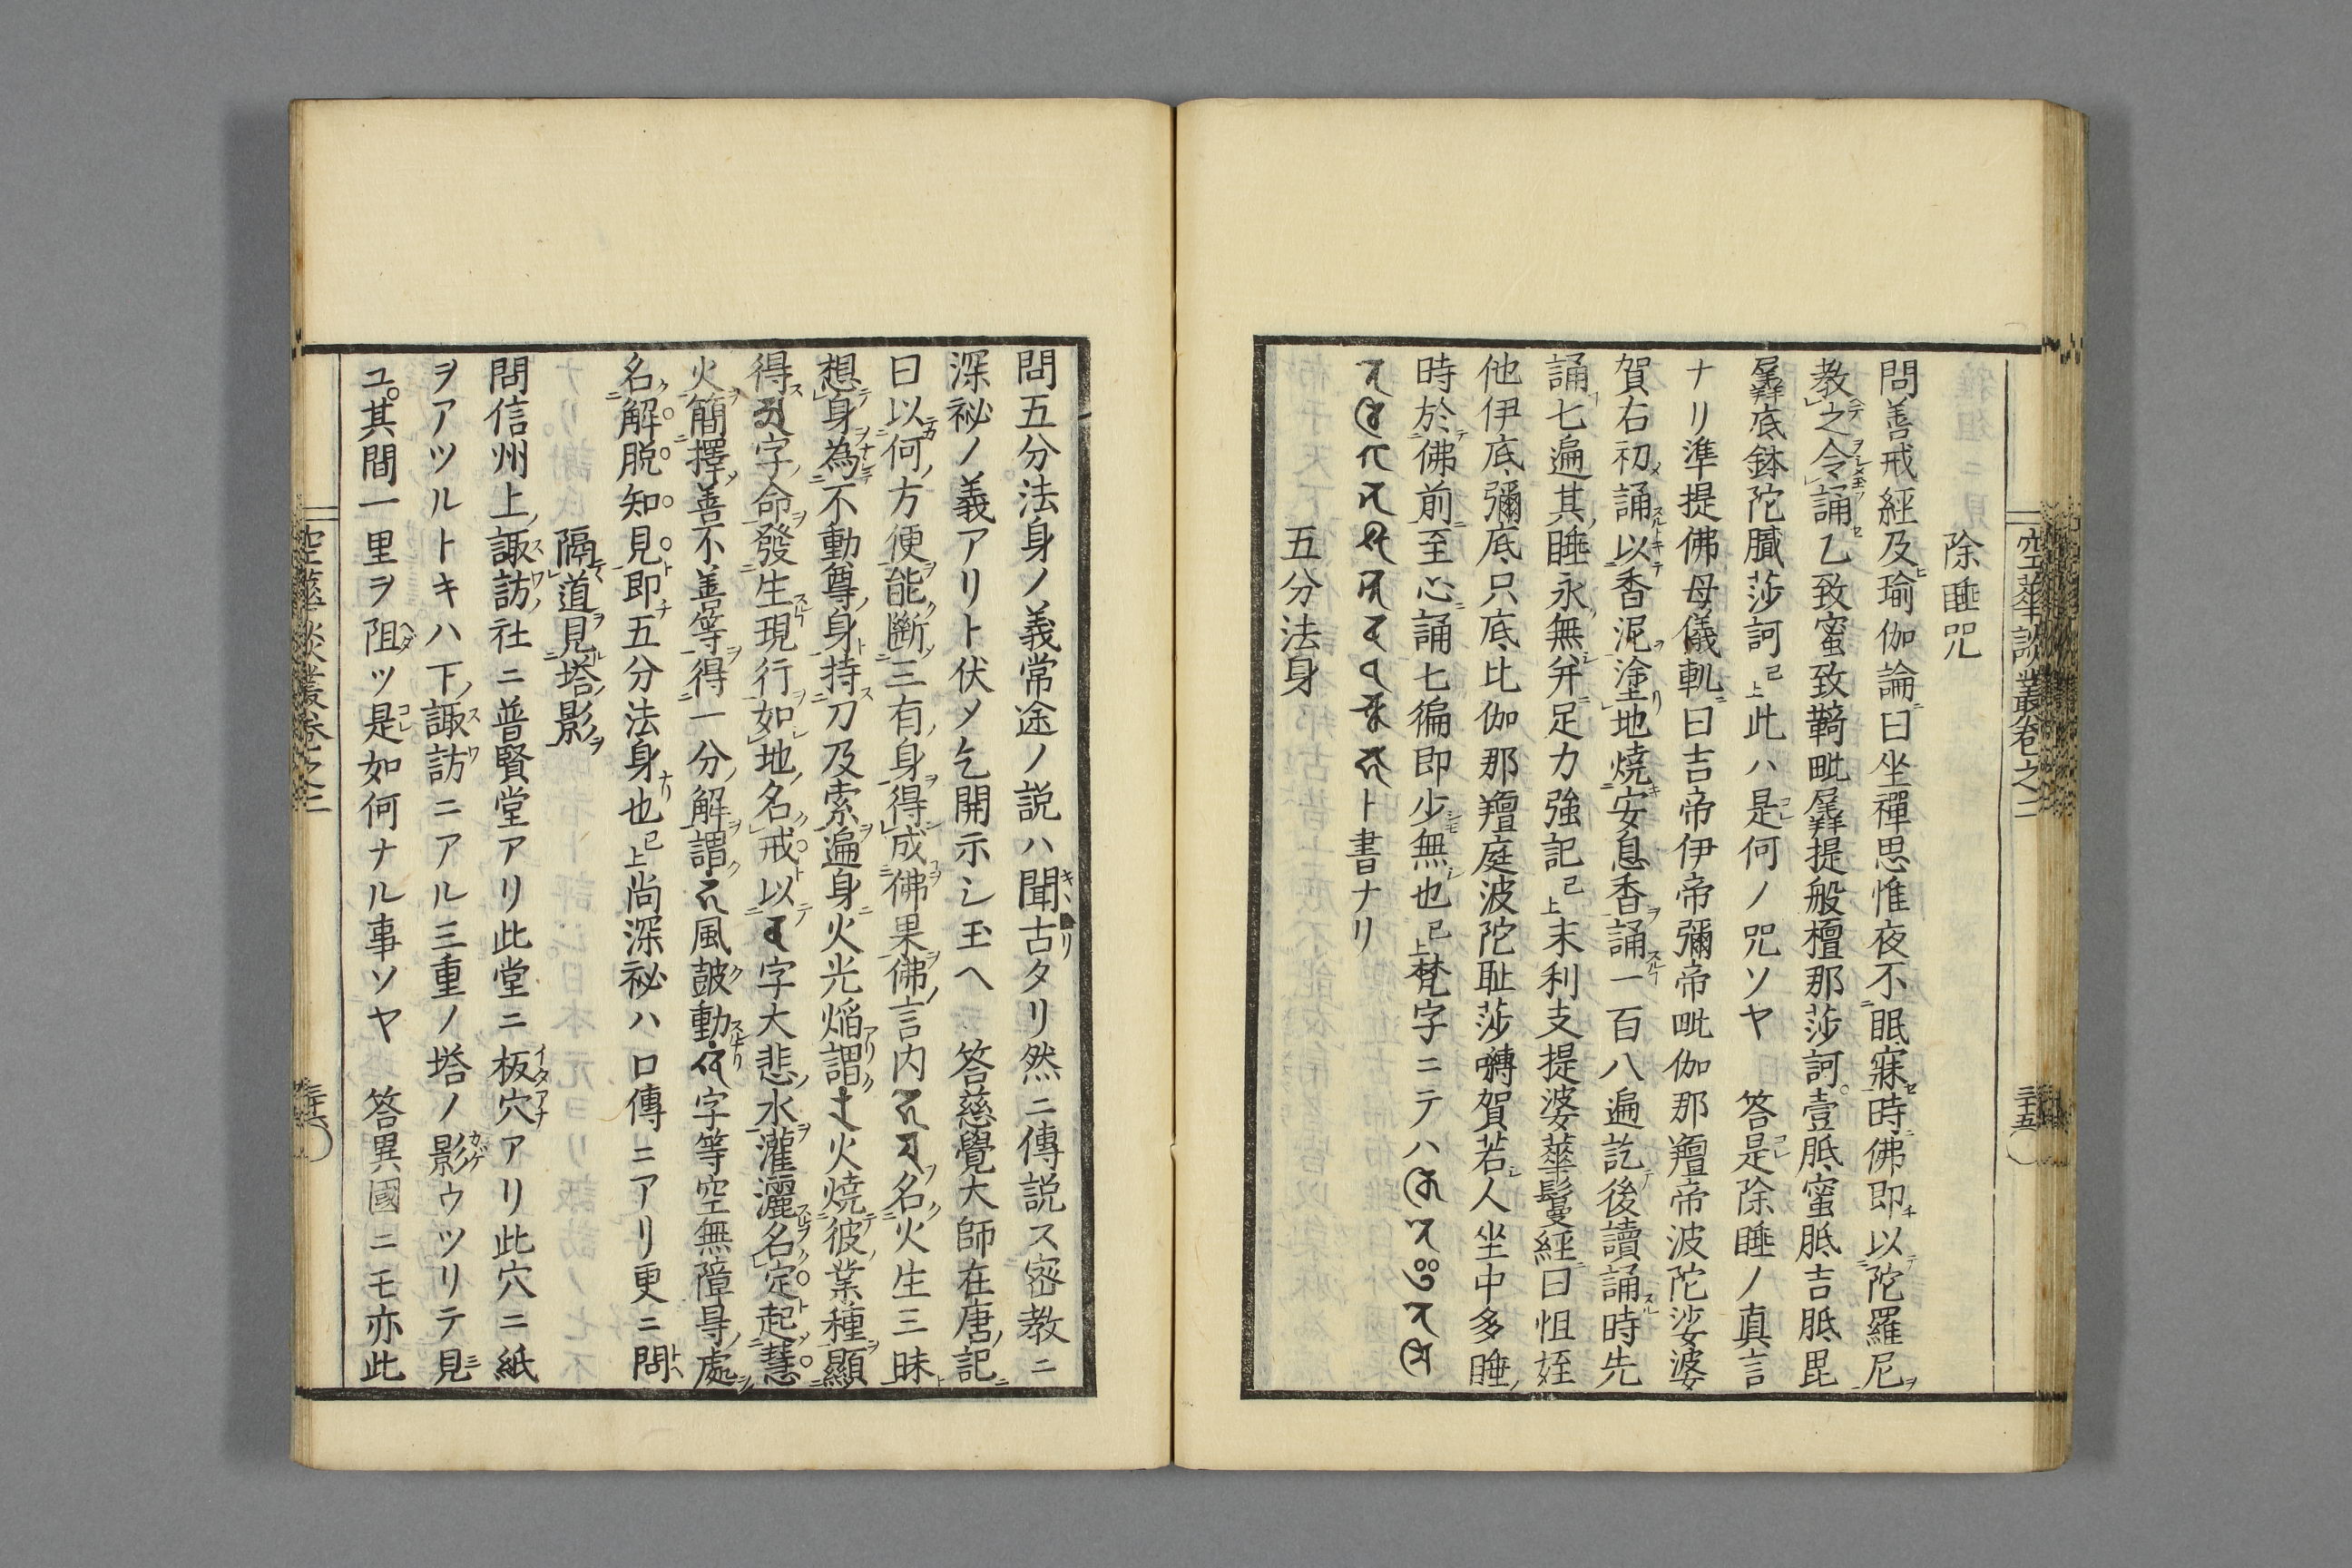 空華談叢巻之二
三十五
除睡咒
問善戒經及瑜伽論曰坐禪思惟夜不眠寐時佛即以陀羅尼
教之令誦乙致蜜致鞊毗犀提般檀那莎訶壹胝蜜胝吉胝毘
羼底鉢陀膱莎訶已上此ハ是何ノ咒ソヤ 答是除睡ノ真言
ナリ準提佛母儀軌曰吉帝伊帝彌帝毗伽那羶帝波陀娑婆
賀右初誦以香泥塗地燒安息香誦一百八遍訖後讀誦時先
誦七遍其睡永無并足力強記已上末利支提婆華鬘經曰怛姪
他伊底彌底只底比伽那羶庭波陀耻莎嚩賀若人坐中多睡
時於佛前至心誦七徧即少無也已上梵字ニテハ
ト書ナリ
五分法身
問五分法身ノ義常途ノ説ハ聞古タリ然ニ傳説ス密教ニ
深祕ノ義アリト伏メ乞開示シ玉ヘ 答慈覺大師在唐記
曰以何方便能斷三有身得成佛果佛言内名火生三昧
想身為不動尊身持刀及索遍身火光焔謂火燒彼業種顯
得字命發生現行如地名戒以字大悲水灌灑名定起慧
火簡擇善不善等得一分解謂風皷動字等空無障㝵處
名解脱知見即五分法身也已上尚深祕ハ口傳ニアリ更ニ問
隔道見塔影
問信州上諏訪社ニ普賢堂アリ此堂ニ板穴アリ此穴ニ紙
ヲアツルトキハ下諏訪ニアル三重ノ塔ノ影ウツリテ見
ユ。其間一里ヲ阻ツ是如何ナル事ソヤ 答異國ニモ亦此
空華談叢巻之二
三十六